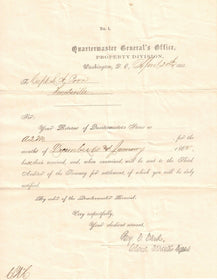 No. 1.
Quartermaster General's Office,
PROPERTY DIVISION,
Washington, D. C., April 20th, 186
To
Sir:
Your Returns of Quartermaster's Stores as
A.Q.M. for the
months of December & January 186
have been received, and when examined will be sent to the Third
Auditor of the Treasury for settlement, of which you will be duly
notified.
By order of the Quartermaster General.
Very respectfully,
Your obedient servant,